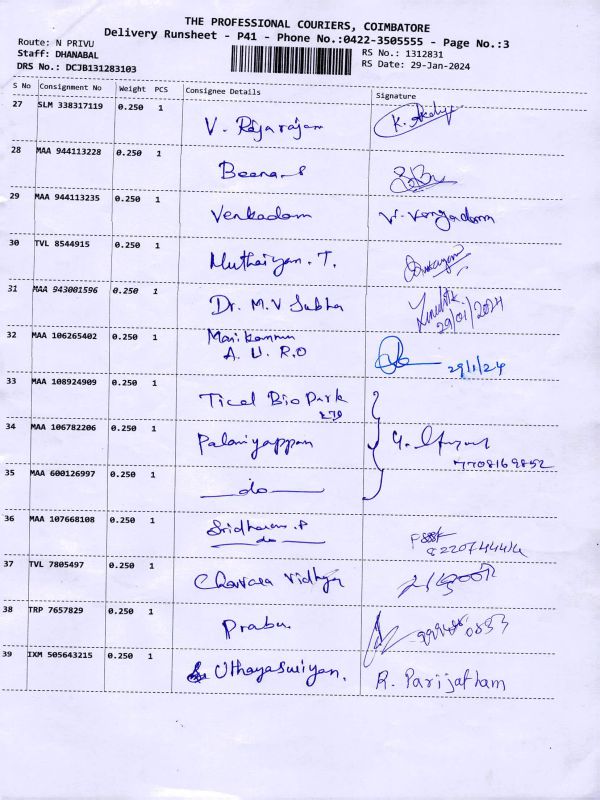 THE PROFESSIONAL COURIERS, COIMBATORE
Delivery Runsheet - P41 - Phone No.:0422-3505555 - Page No.:3
Route: N PRIVU
RS No.: 1312831
Staff: DHANABAL
RS Date: 29-Jan-2024
DRS No.: DCJB131283103
S No Consignment No Weight PCS Consignee Details Signature
27 SLM 338317119 0.250 1 V. Rajarajam
28 MAA 944113228 0.250 1 Beena S
29 MAA 944113235 0.250 1 Venkadam V. Vengadam
30 TVL 8544915 0.250 1 Muthaiyan. T.
31 MAA 943001596 0.250 1 Dr. M.V Subha
29/01/2024
32 MAA 106265402 0.250 1
A. U. R.O
29/1/24
33 MAA 108924909 0.250 1 Ticel Bio Park
34 MAA 106782206 0.250 1 Palaniyappan
7708169852
35 MAA 600126997 0.250 1 do
36 MAA 107668108 0.250 1 Sridharan .P
do
37 TVL 7805497 0.250 1 Vidhya
38 TRP 7657829 0.250 1 Prabu.
39 IXM 505643215 0.250 1 Uthayasuriyan. R. Parijatham